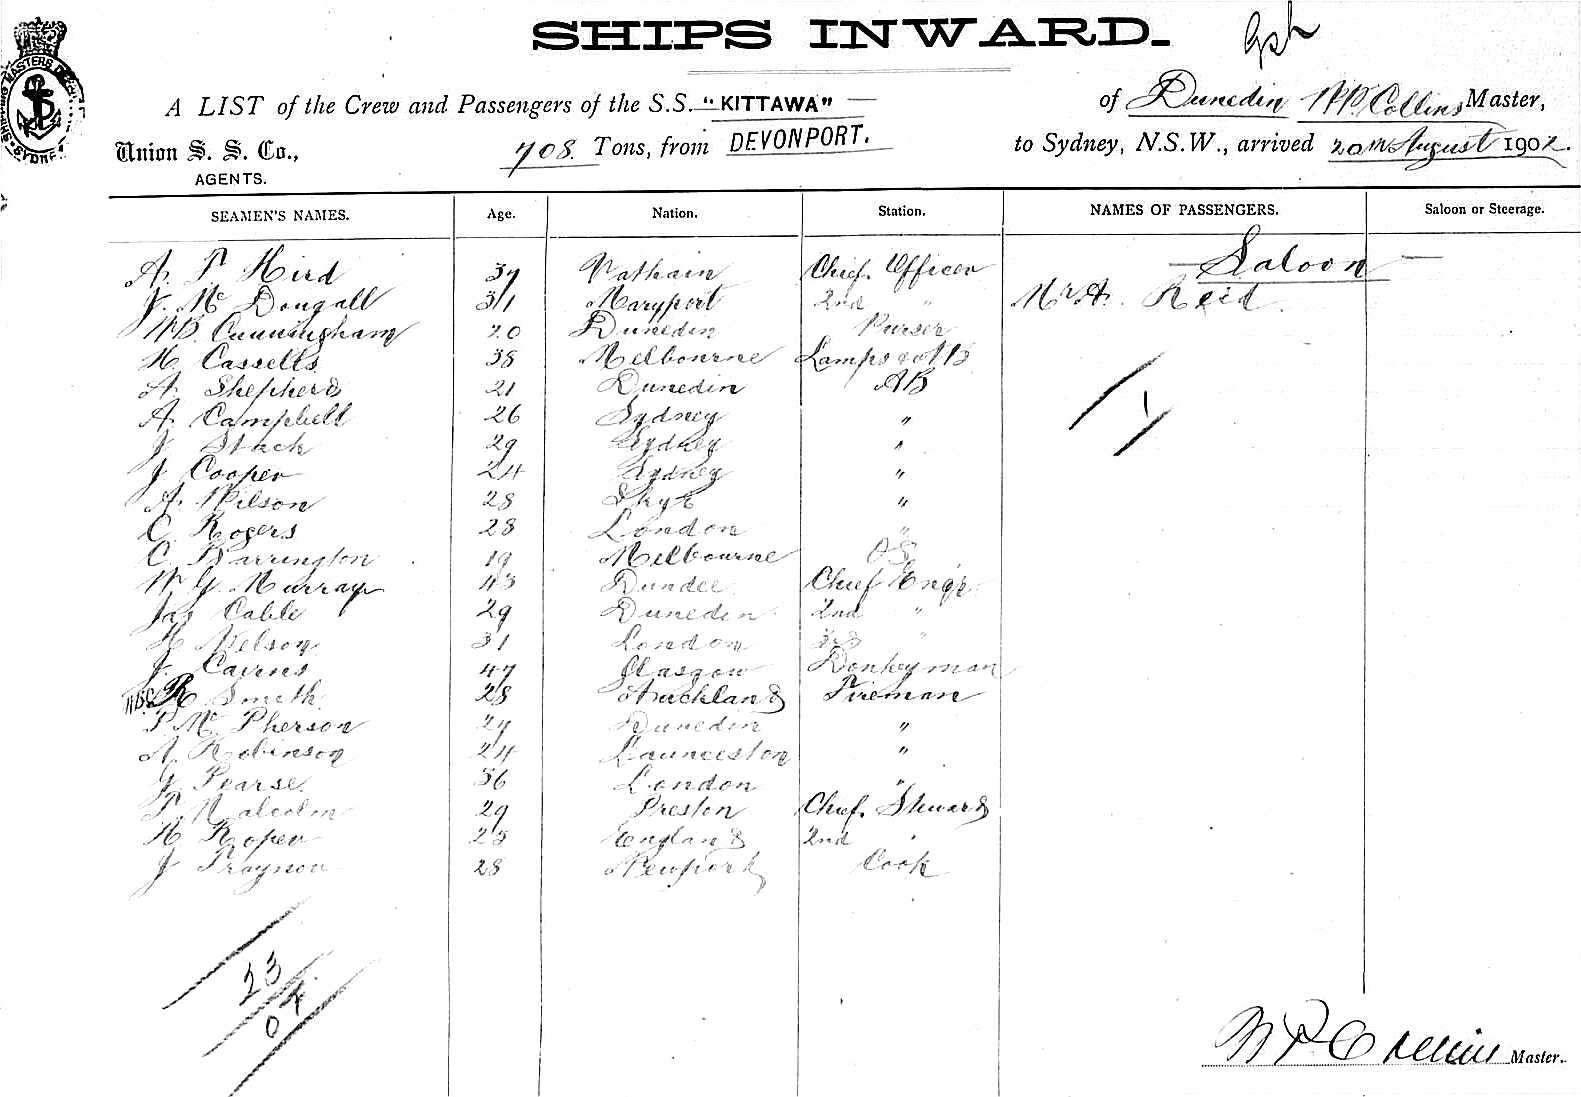 SHIPS INWARD.
A LIST of the Crew and Passengers of the S.S. "KITTAWA" of Dunedin W.P. Collins Master,
Union S. S. Co., AGENTS. 708. Tons, from DEVONPORT. to Sydney, N.S.W., arrived 20th August 1902.
SEAMEN'S NAMES. Age. Nation. Station. NAMES OF PASSENGERS. Saloon or Steerage.
Saloon
A. P Hird 37 Chief. Officer
J. Mc Dougall 31 Maryport 2nd " Mr A. Reid.
W.B. Cunningham 20 Dunedin Purser
H. Cassells 38 Melbourne Lamps & AB
A Shepherd 21 Dunedin AB
A. Campbell 26 Sydney "
J Stack 29 Sydney "
J Cooper 24 Sydney "
A. Wilson 28 Skye "
C. Rogers 28 London "
C. Barrington 19 Melbourne OS
W G. Murray 43 Dundee Chief Engr
Jas Cable 29 Dunedin 2nd "
H Nelson 31 London 3rd "
J. Cairns 47 Glasgow Donkeyman
R Smith 28 Auckland Fireman
P. Mc Pherson 27 Dunedin "
A. Robinson 24 Launceston "
J Pearse 36 London "
P. Malcolm 29 Preston Chief. Steward
H Roper 25 England 2nd "
J Traynor 28 Newport Cook
1
23
W P Collins Master.